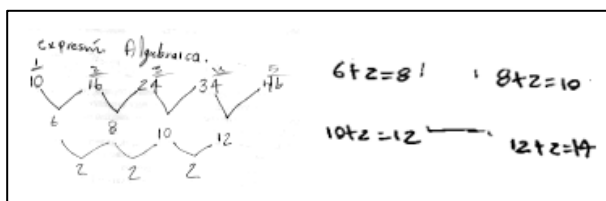 expresión Algebraica.
1 2 3 4 5
10 16 24 34 46
6 8 10 12
2 2 2
6+2=8 8+2=10
10+2=12 12+2=14